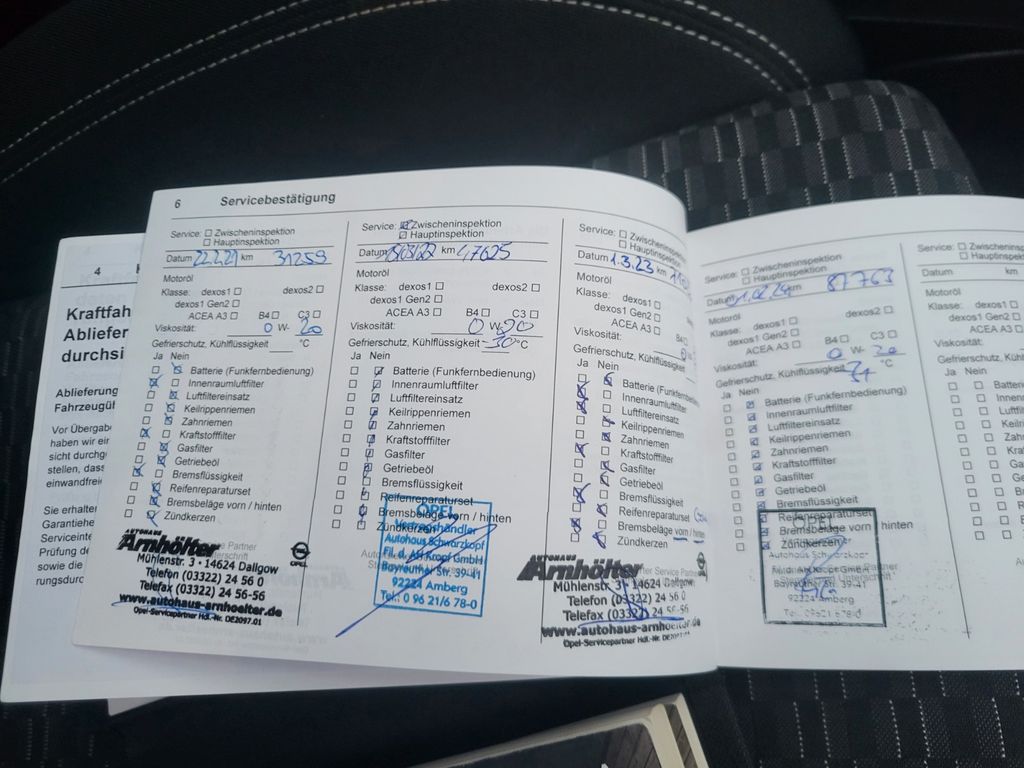 4
Kraftfah
Abliefer
durchsi
Ablieferung
Fahrzeugü
Vor Übergab
haben wir ein
sicht durchg
stellen, dass
einwandfrei
Sie erhalter
Garantiehe
Serviceinte
Prüfung d
sowie die
rungsdurc
6 Servicebestätigung
Service: Zwischeninspektion
Hauptinspektion
Datum 22.2.21 km 31259
Motoröl
Klasse: dexos1 dexos2
dexos1 Gen2
ACEA A3 B4 C3
Viskosität: 0 W- 20
Gefrierschutz, Kühlflüssigkeit °C
Ja Nein
Batterie (Funkfernbedienung)
Innenraumluftfilter
Luftfiltereinsatz
Keilrippenriemen
Zahnriemen
Kraftstofffilter
Gasfilter
Getriebeöl
Bremsflüssigkeit
Reifenreparaturset
Bremsbeläge vorn / hinten
Zündkerzen
AUTOHAUS
Arnhölter
OPEL
Mühlenstr. 3 · 14624 Dallgow
Telefon (03322) 24 56 0
Telefax (03322) 24 56-56
www.autohaus-arnhoelter.de
Opel-Servicepartner Hdl.-Nr. DE2097.01
Service: Zwischeninspektion
Hauptinspektion
Datum km 47625
Motoröl
Klasse: dexos1 dexos2
dexos1 Gen2
ACEA A3 B4 C3
Viskosität: 0 W- 20
Gefrierschutz, Kühlflüssigkeit -30 °C
Ja Nein
Batterie (Funkfernbedienung)
Innenraumluftfilter
Luftfiltereinsatz
Keilrippenriemen
Zahnriemen
Kraftstofffilter
Gasfilter
Getriebeöl
Bremsflüssigkeit
Reifenreparaturset
Bremsbeläge vorn / hinten
Zündkerzen
OPEL
Vertragshändler
Autohaus Schwarzkopf
Fil. d. AH Kropf GmbH
Bayreuther Str. 39-41
92224 Amberg
Tel.: 0 96 21/6 78-0
Service: Zwischeninspektion
Hauptinspektion
Datum 1.3.23 km
Motoröl
Klasse: dexos1
dexos1 Gen2
ACEA A3
Viskosität:
Gefrierschutz, Kühlflüssigkeit
Ja Nein
Batterie (Funkfern
Innenraumluftfilter
Luftfiltereinsatz
Keilrippenriemen
Zahnriemen
Kraftstofffilter
Gasfilter
Getriebeöl
Bremsflüssigkeit
Reifenreparaturset
Bremsbeläge vorn / hinten
Zündkerzen
AUTOHAUS
Arnhölter
Mühlenstr. 3 · 14624 Dallgow
Telefon (03322) 24 56 0
Telefax (03322) 24 56-56
www.autohaus-arnhoelter.de
Opel-Servicepartner Hdl.-Nr. DE2097
Service: Zwischeninspektion
Hauptinspektion
Datum km 87763
Motoröl
Klasse: dexos1 dexos2
dexos1 Gen2
ACEA A3 B4 C3
Viskosität: 0 W- 20
Gefrierschutz, Kühlflüssigkeit °C
Ja Nein
Batterie (Funkfernbedienung)
Innenraumluftfilter
Luftfiltereinsatz
Keilrippenriemen
Zahnriemen
Kraftstofffilter
Gasfilter
Getriebeöl
Bremsflüssigkeit
Reifenreparaturset
Bremsbeläge vorn / hinten
Zündkerzen
OPEL
Autohaus Schwarzkopf
Fil. d. AH Kropf GmbH
Bayreuther Str. 39-41
92224 Amberg
Tel.: 09621/678-0
Service: Zwischeninspek
Hauptinspektion
Datum km
Motoröl
Klasse: dexos1
dexos1 Gen2
ACEA A3
Viskosität:
Gefrierschutz, Kühlflüss
Ja Nein
Batterie
Innen
Luftf
Keilri
Zahn
Kraft
Gas